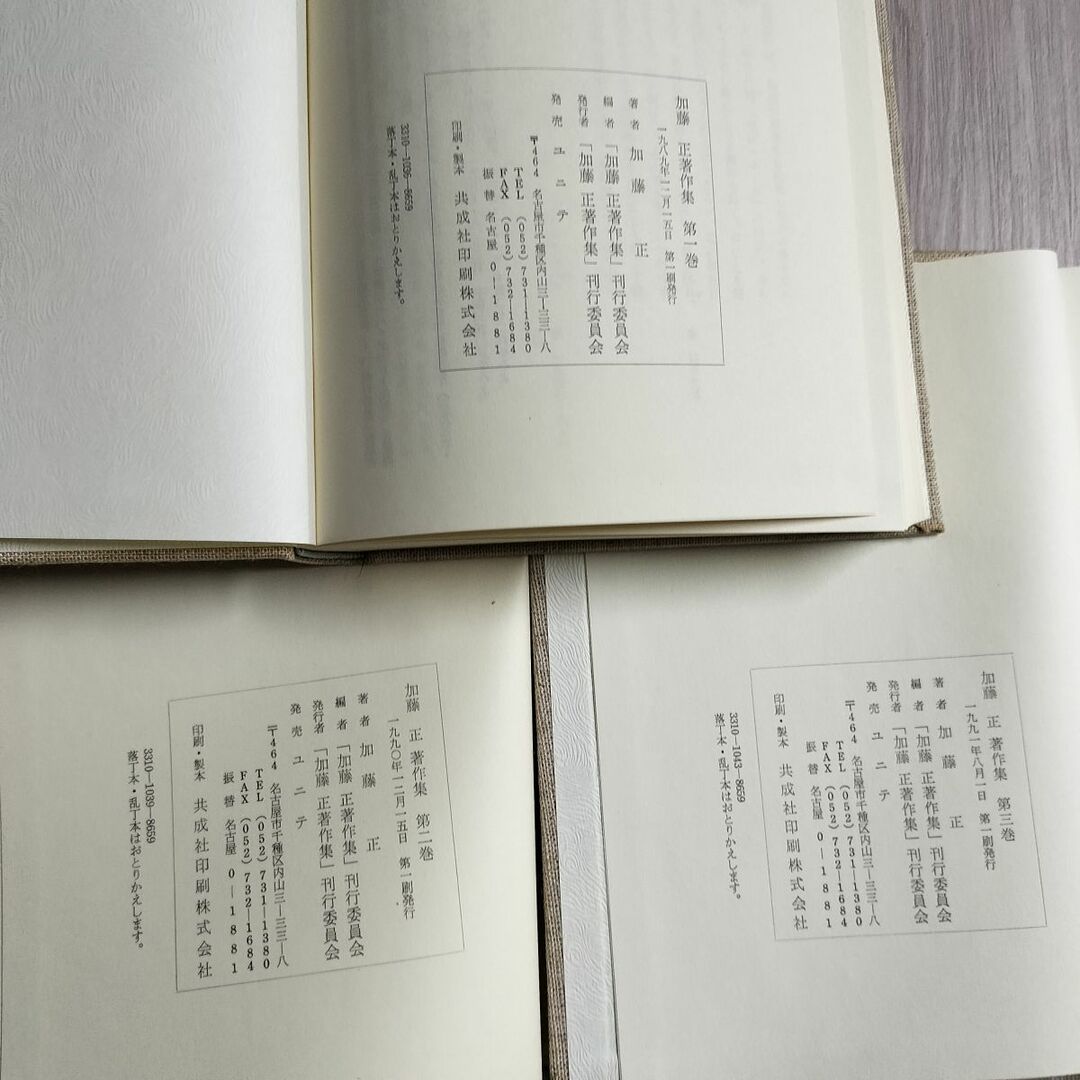 加藤 正著作集 第一巻
一九八九年一二月一五日 第一刷発行
著者 加藤 正
編者 「加藤 正著作集」刊行委員会
発行者 「加藤 正著作集」刊行委員会
発売 ユニテ
〒464 名古屋市千種区内山三―三三―八
TEL (052) 731―1380
FAX (052) 732―1684
振替 名古屋 0―1881
印刷・製本 共成社印刷株式会社
3310―1036―8659
落丁本・乱丁本はおとりかえします。
加藤 正 著作集 第二巻
一九九〇年一二月一五日 第一刷発行
著者 加藤 正
編者 「加藤 正著作集」刊行委員会
発行者 「加藤 正著作集」刊行委員会
発売 ユニテ
〒464 名古屋市千種区内山三―三三―八
TEL (052) 731―1380
FAX (052) 732―1684
振替 名古屋 0―1881
印刷・製本 共成社印刷株式会社
3310―1039―8659
落丁本・乱丁本はおとりかえします。
加藤 正 著作集 第三巻
一九九一年八月一日 第一刷発行
著者 加藤 正
編者 「加藤 正著作集」刊行委員会
発行者 「加藤 正著作集」刊行委員会
発売 ユニテ
〒464 名古屋市千種区内山三―三三―八
TEL (052) 731―1380
FAX (052) 732―1684
振替 名古屋 0―1881
印刷・製本 共成社印刷株式会社
3310―1043―8659
落丁本・乱丁本はおとりかえします。